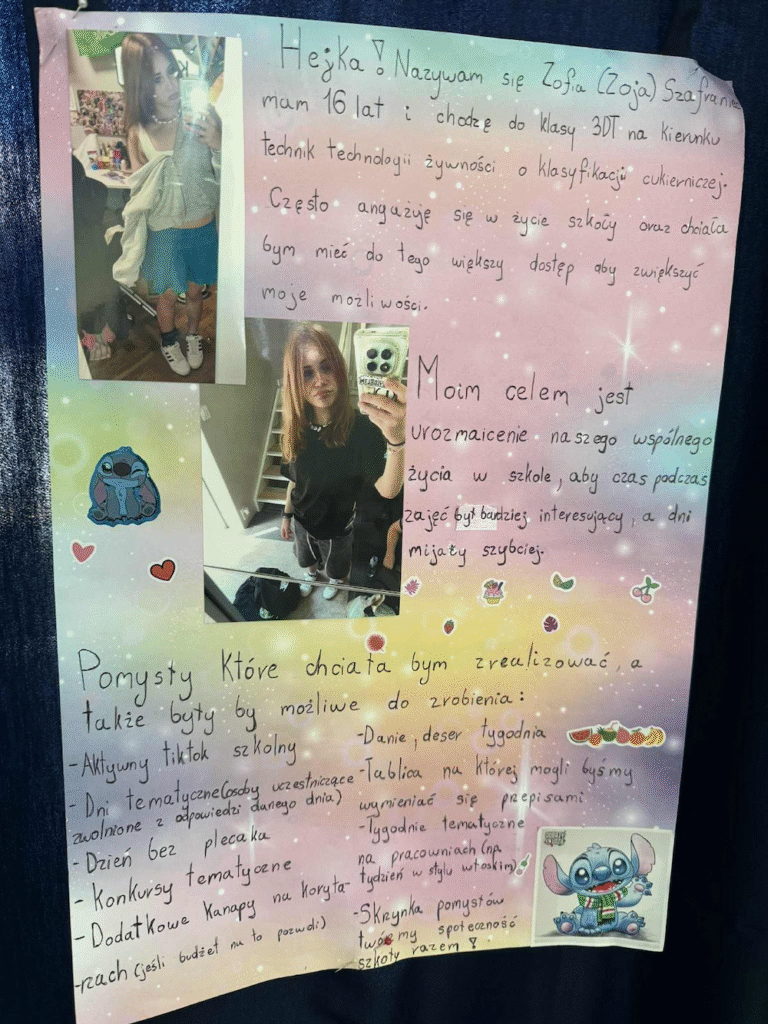 Hejka! Nazywam się Zofia (Zoja) Szafraniec
mam 16 lat i chodzę do klasy 3DT na kierunku
technik technologii żywności o klasyfikacji cukierniczej.
Często angażuję się w życie szkoły oraz chciała
bym mieć do tego większy dostęp aby zwiększyć
moje możliwości.
Moim celem jest
urozmaicenie naszego wspólnego
życia w szkole, aby czas podczas
zajęć był bardziej interesujący, a dni
mijały szybciej.
Pomysły które chciała bym zrealizować, a
także były by możliwe do zrobienia:
-Aktywny tiktok szkolny
- Dni tematyczne (osoby uczestniczące
zwolnione z odpowiedzi danego dnia)
- Dzień bez plecaka
- Konkursy tematyczne
- Dodatkowe kanapy na koryta-
-rzach (jeśli budżet na to pozwoli)
-Danie, deser tygodnia
-Tablica na której mogli byśmy
wymieniać się przepisami
-Tygodnie tematyczne
na pracowniach (np.
tydzień w stylu włoskim)
-Skrzynka pomysłów
twórzmy społeczność
szkoły razem!